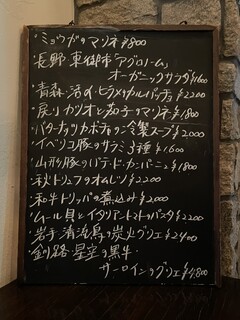 ・ミョウガのマリネ ¥800
長野 東御市「アグロノーム」
オーガニックサラダ ¥1600
・青森 活〆ヒラメのカルパッチョ ¥2200
・戻りカツオと茄子のマリネ ¥1800
・バターナッツカボチャの冷製スープ ¥2000
・イベリコ豚のサラミ 3種 ¥1600
・山形豚のパテ・ド・カンパーニュ ¥1800
・秋トリュフのオムレツ ¥2200
・和牛トリッパの煮込み ¥2000
・ムール貝とイタリアントマトのパスタ ¥2200
・岩手 清流鶏の炭火グリエ ¥2400
・釧路・星空の黒牛
サーロインのグリエ ¥4800